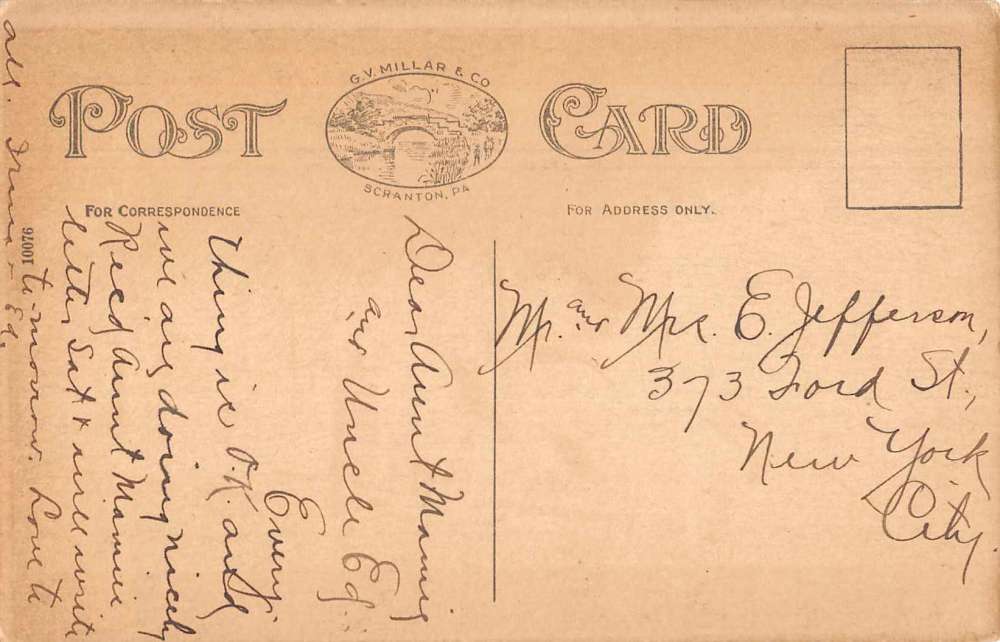 G.V. MILLAR & CO
POST CARD
SCRANTON, PA
FOR CORRESPONDENCE
FOR ADDRESS ONLY.
Dear Aunt Mamie
and Uncle Ed.
Every
thing is O.K. and
we are doing nicely
Rec'd Aunt Mamie
letter Sat & will write
to-morrow. Love to
all. Irma - Ed.
10076
Mr. and Mrs. E. Jefferson,
373 Ford St.,
New York
City.